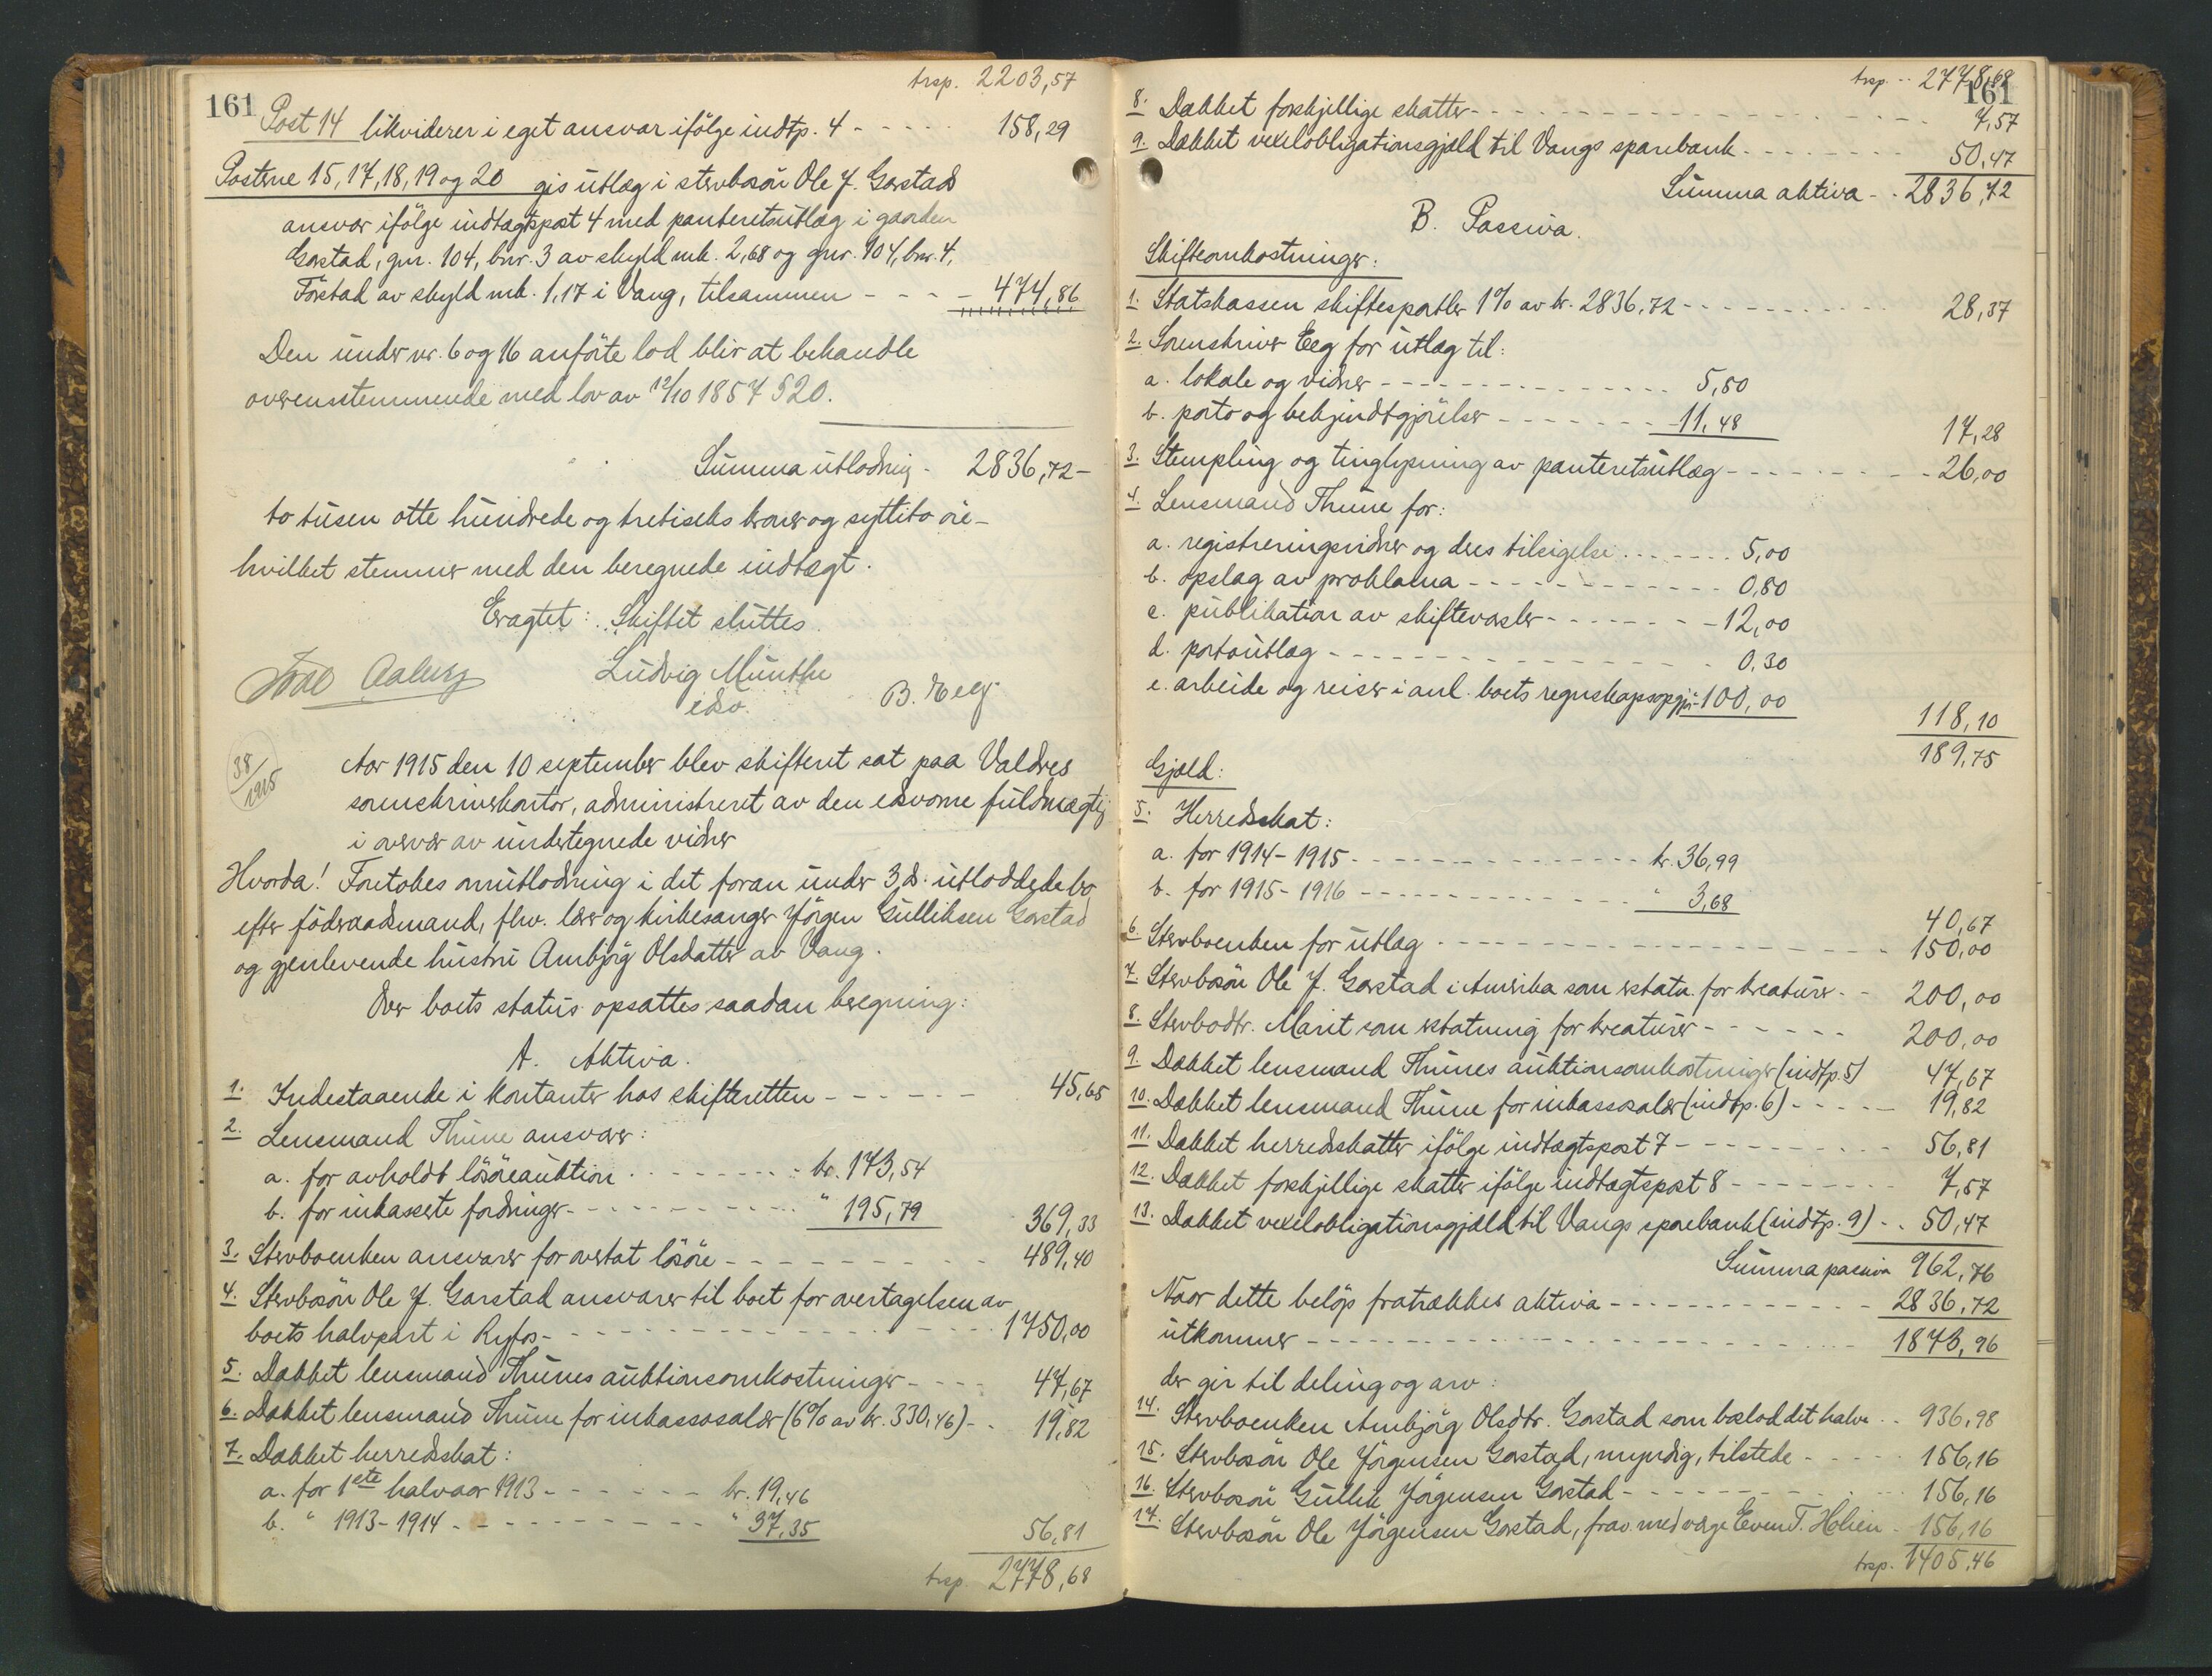 trsp. 2203,57
161
Post 14 likviderer i eget ansvar ifölge indtp. 4 - - - - - 158,29
Posterne 15, 17, 18, 19 og 20 gis utlæg i stervbosön Ole J. Garstads
ansvar ifölge indtægtspost 4 med panteretsutlæg i gaarden
Garstad, gnr. 104, bnr. 3 av skyld mk. 2,68 og gnr. 104, bnr. 4,
Förstad av skyld mk. 1,17 i Vang, tilsammen - - - - 474,86
Den under nr. 6 og 16 anförte lod blir at behandle
overensstemmende med lov av 12/10 1857 § 20.
Summa utlodning - 2836,72 -
to tusen otte hundrede og tretiseks kroner og syttito öre -
hvilket stemmer med den beregnede indtægt.
Eragtet: Skiftet sluttes.
Aaberg
Ludvig Munthe
edsv.
B. Eeg
38/1915
Aar 1915 den 10 september blev skifteret sat paa Valdres
sorenskriverkontor, administreret av den edsvorne fuldmægtig
i overvær av undertegnede vidner
Hvorda! Foretokes omutlodning i det foran under 3 d. utloddede bo
efter föderaadsmand, fhv. lærer og kirkesanger Jörgen Gulliksen Garstad
og gjenlevende hustru Ambjörg Olsdatter av Vang.
Over boets status opsattes saadan beregning:
A. Aktiva.
1. Indestaaende i kontanter hos skifteretten - - - - - - 45,65
2. Lensmand Thune ansvarer:
a. for avholdt lösöreauktion - - - - - - - kr. 173,54
b. for inkasserte fordringer - - - - - - - " 195,79
369,33
3. Stervboenken ansvarer for overtat lösöre - - - - - - - - - 489,40
4. Stervbosön Ole J. Garstad ansvarer til boet for overtagelsen av
boets halvpart i Ryfos - - - - - - - - - - 1750,00
5. Dækket lensmand Thunes auktionsomkostninger - - - - 47,67
6. Dækket lensmand Thune for inkassosalær (6% av kr. 330,46) - - 19,82
7. Dækket herredsskat:
a. for 1ste halvaar 1913 - - - - - - kr. 19,46
b. " 1913-1914 - - - - - - - - - " 37,35
56,81
trsp. 2778,68
trsp. - - 2778,68
161
8. Dækket forskjellige skatter - - - - - - - - - - - - 7,57
9. Dækket vexelobligationsgjæld til Vangs sparebank - - - - - - - 50,47
Summa aktiva - - 2836,72
B. Passiva.
Skifteomkostninger:
1. Statskassen skiftesportler 1% av kr. 2836,72 - - - - - - - - - 28,37
2. Sorenskriver Eeg for utlæg til:
a. lokale og vidner - - - - - - - - - - - - - - 5,80
b. porto og bekjendtgjörelser - - - - - - - 11,48
17,28
3. Stempling og tinglysning av panteretsutlæg - - - - - - - - - 26,00
4. Lensmand Thune for:
a. registreringsvidner og deres tilsigelse - - - - - - - 5,00
b. opslag av proklama - - - - - - - - - - - - 0,80
c. publikation av skiftevarsler - - - - - - - - 12,00
d. portoutlæg - - - - - - - - - - - - - - 0,30
e. arbeide og reiser i anl. boets regnskapsopgjör - 100,00
118,10
189,75
Gjæld:
5. Herredsskat:
a. for 1914-1915 - - - - - - - - - - - - - - kr. 36,99
b. for 1915-1916 - - - - - - - - - - - - - " 3,68
40,67
6. Stervboenken for utlæg - - - - - - - - - - - - - - - - 150,00
7. Stervbosön Ole J. Garstad i Amerika som erstatn. for kreaturer - - 200,00
8. Stervbodtr. Marit som erstatning for kreaturer - - - - - - 200,00
9. Dækket lensmand Thunes auktionsomkostninger (indtp. 5) 47,67
10. Dækket lensmand Thune for inkassosalær (indtp. 6) - - - - - 19,82
11. Dækket herredsskatter ifölge indtægtspost 7 - - - - - - - - - 56,81
12. Dækket forskjellige skatter ifölge indtægtspost 8 - - - - - - - 7,57
13. Dækket vexelobligationsgjæld til Vangs sparebank (indtp. 9) - - 50,47
Summa passiva 962,76
Naar dette belöp fratrækkes aktiva - - - - - - - - - - - - 2836,72
utkommer - - - - - - - - - - - - - - - - - - - - 1873,96
der gir til deling og arv:
14. Stervboenken Ambjörg Olsdtr. Garstad som boslod det halve - - 936,98
15. Stervbosön Ole Jörgensen Garstad, myndig, tilstede - - - - - 156,16
16. Stervbosön Gullik Jörgensen Garstad - - - - - - - - - - 156,16
17. Stervbosön Ole Jörgensen Garstad, frav. med verge Even T. Holien - 156,16
trsp. 1405,46